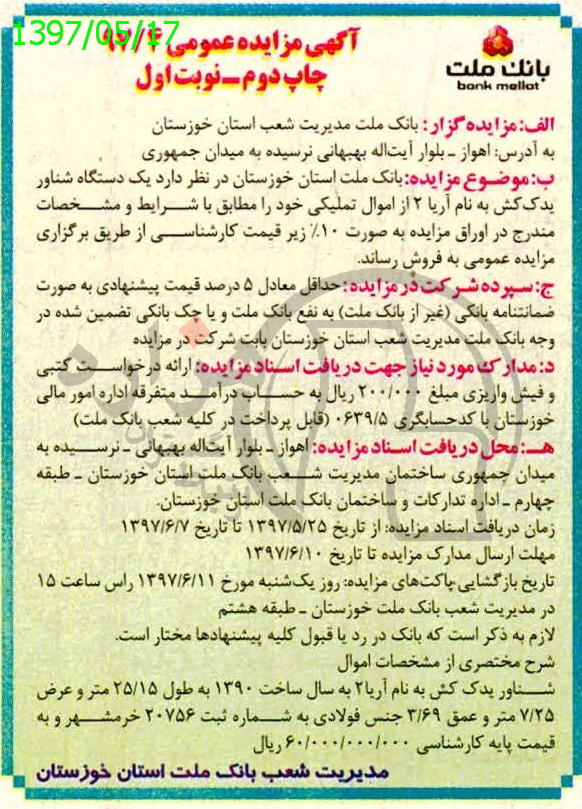 1397/05/17
آگهی مزایده عمومی ۹۷/۴
چاپ دوم ـ نوبت اول
بانک ملت
bank mellat
الف: مزایده گزار: بانک ملت مدیریت شعب استان خوزستان
به آدرس: اهواز ـ بلوار آیت‌اله بهبهانی نرسیده به میدان جمهوری
ب: موضوع مزایده: بانک ملت استان خوزستان در نظر دارد یک دستگاه شناور
یدک‌کش به نام آریا ۲ از اموال تملیکی خود را مطابق با شرایط و مشخصات
مندرج در اوراق مزایده به صورت ۱۰٪ زیر قیمت کارشناسی از طریق برگزاری
مزایده عمومی به فروش رساند.
ج: سپرده شرکت در مزایده: حداقل معادل ۵ درصد قیمت پیشنهادی به صورت
ضمانتنامه بانکی (غیر از بانک ملت) به نفع بانک ملت و یا چک بانکی تضمین شده در
وجه بانک ملت مدیریت شعب استان خوزستان بابت شرکت در مزایده
د: مدارک مورد نیاز جهت دریافت اسناد مزایده: ارائه درخواست کتبی
و فیش واریزی مبلغ ۲۰۰/۰۰۰ ریال به حساب درآمد متفرقه اداره امور مالی
خوزستان با کدحسابگری ۰۶۳۹/۵ (قابل پرداخت در کلیه شعب بانک ملت)
هـ: محل دریافت اسناد مزایده: اهواز ـ بلوار آیت‌اله بهبهانی ـ نرسیده به
میدان جمهوری ساختمان مدیریت شعب بانک ملت استان خوزستان ـ طبقه
چهارم ـ اداره تدارکات و ساختمان بانک ملت استان خوزستان.
زمان دریافت اسناد مزایده: از تاریخ ۱۳۹۷/۵/۲۵ تا تاریخ ۱۳۹۷/۶/۷
مهلت ارسال مدارک مزایده تا تاریخ ۱۳۹۷/۶/۱۰
تاریخ بازگشایی پاکت‌های مزایده: روز یک‌شنبه مورخ ۱۳۹۷/۶/۱۱ راس ساعت ۱۵
در مدیریت شعب بانک ملت خوزستان ـ طبقه هشتم
لازم به ذکر است که بانک در رد یا قبول کلیه پیشنهادها مختار است.
شرح مختصری از مشخصات اموال
شناور یدک کش به نام آریا۲ به سال ساخت ۱۳۹۰ به طول ۲۵/۱۵ متر و عرض
۷/۲۵ متر و عمق ۳/۶۹ جنس فولادی به شماره ثبت ۲۰۷۵۶ خرمشهر و به
قیمت پایه کارشناسی ۶۰/۰۰۰/۰۰۰/۰۰۰ ریال
مدیریت شعب بانک ملت استان خوزستان